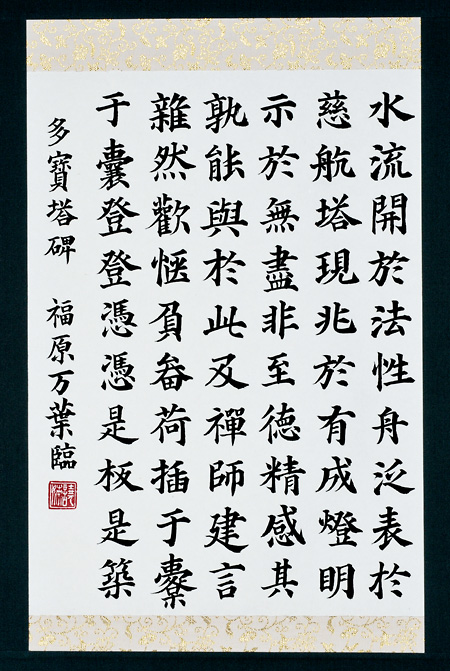 水流開於法性舟泛表於
慈航塔現兆於有成燈明
示於無盡非至德精感其
孰能與於此及禪師建言
雜然歡愜負畚荷插于橐
于囊登登憑憑是板是築
多寶塔碑 福原万葉臨